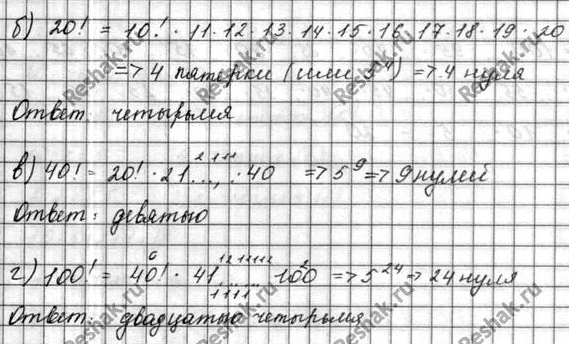 б) 20! = 10! · 11 · 12 · 13 · 14 · 15 · 16 · 17 · 18 · 19 · 20
=> 4 пятерки (или 5⁴) => 4 нуля
Ответ: четырьмя
в) 40! = 20! · 21 ..., · 40 => 5⁹ => 9 нулей
Ответ: девятью
г) 100! = 40! · 41 ... 100 => 5²⁴ => 24 нуля
Ответ: двадцатью четырьмя
Reshak.ru